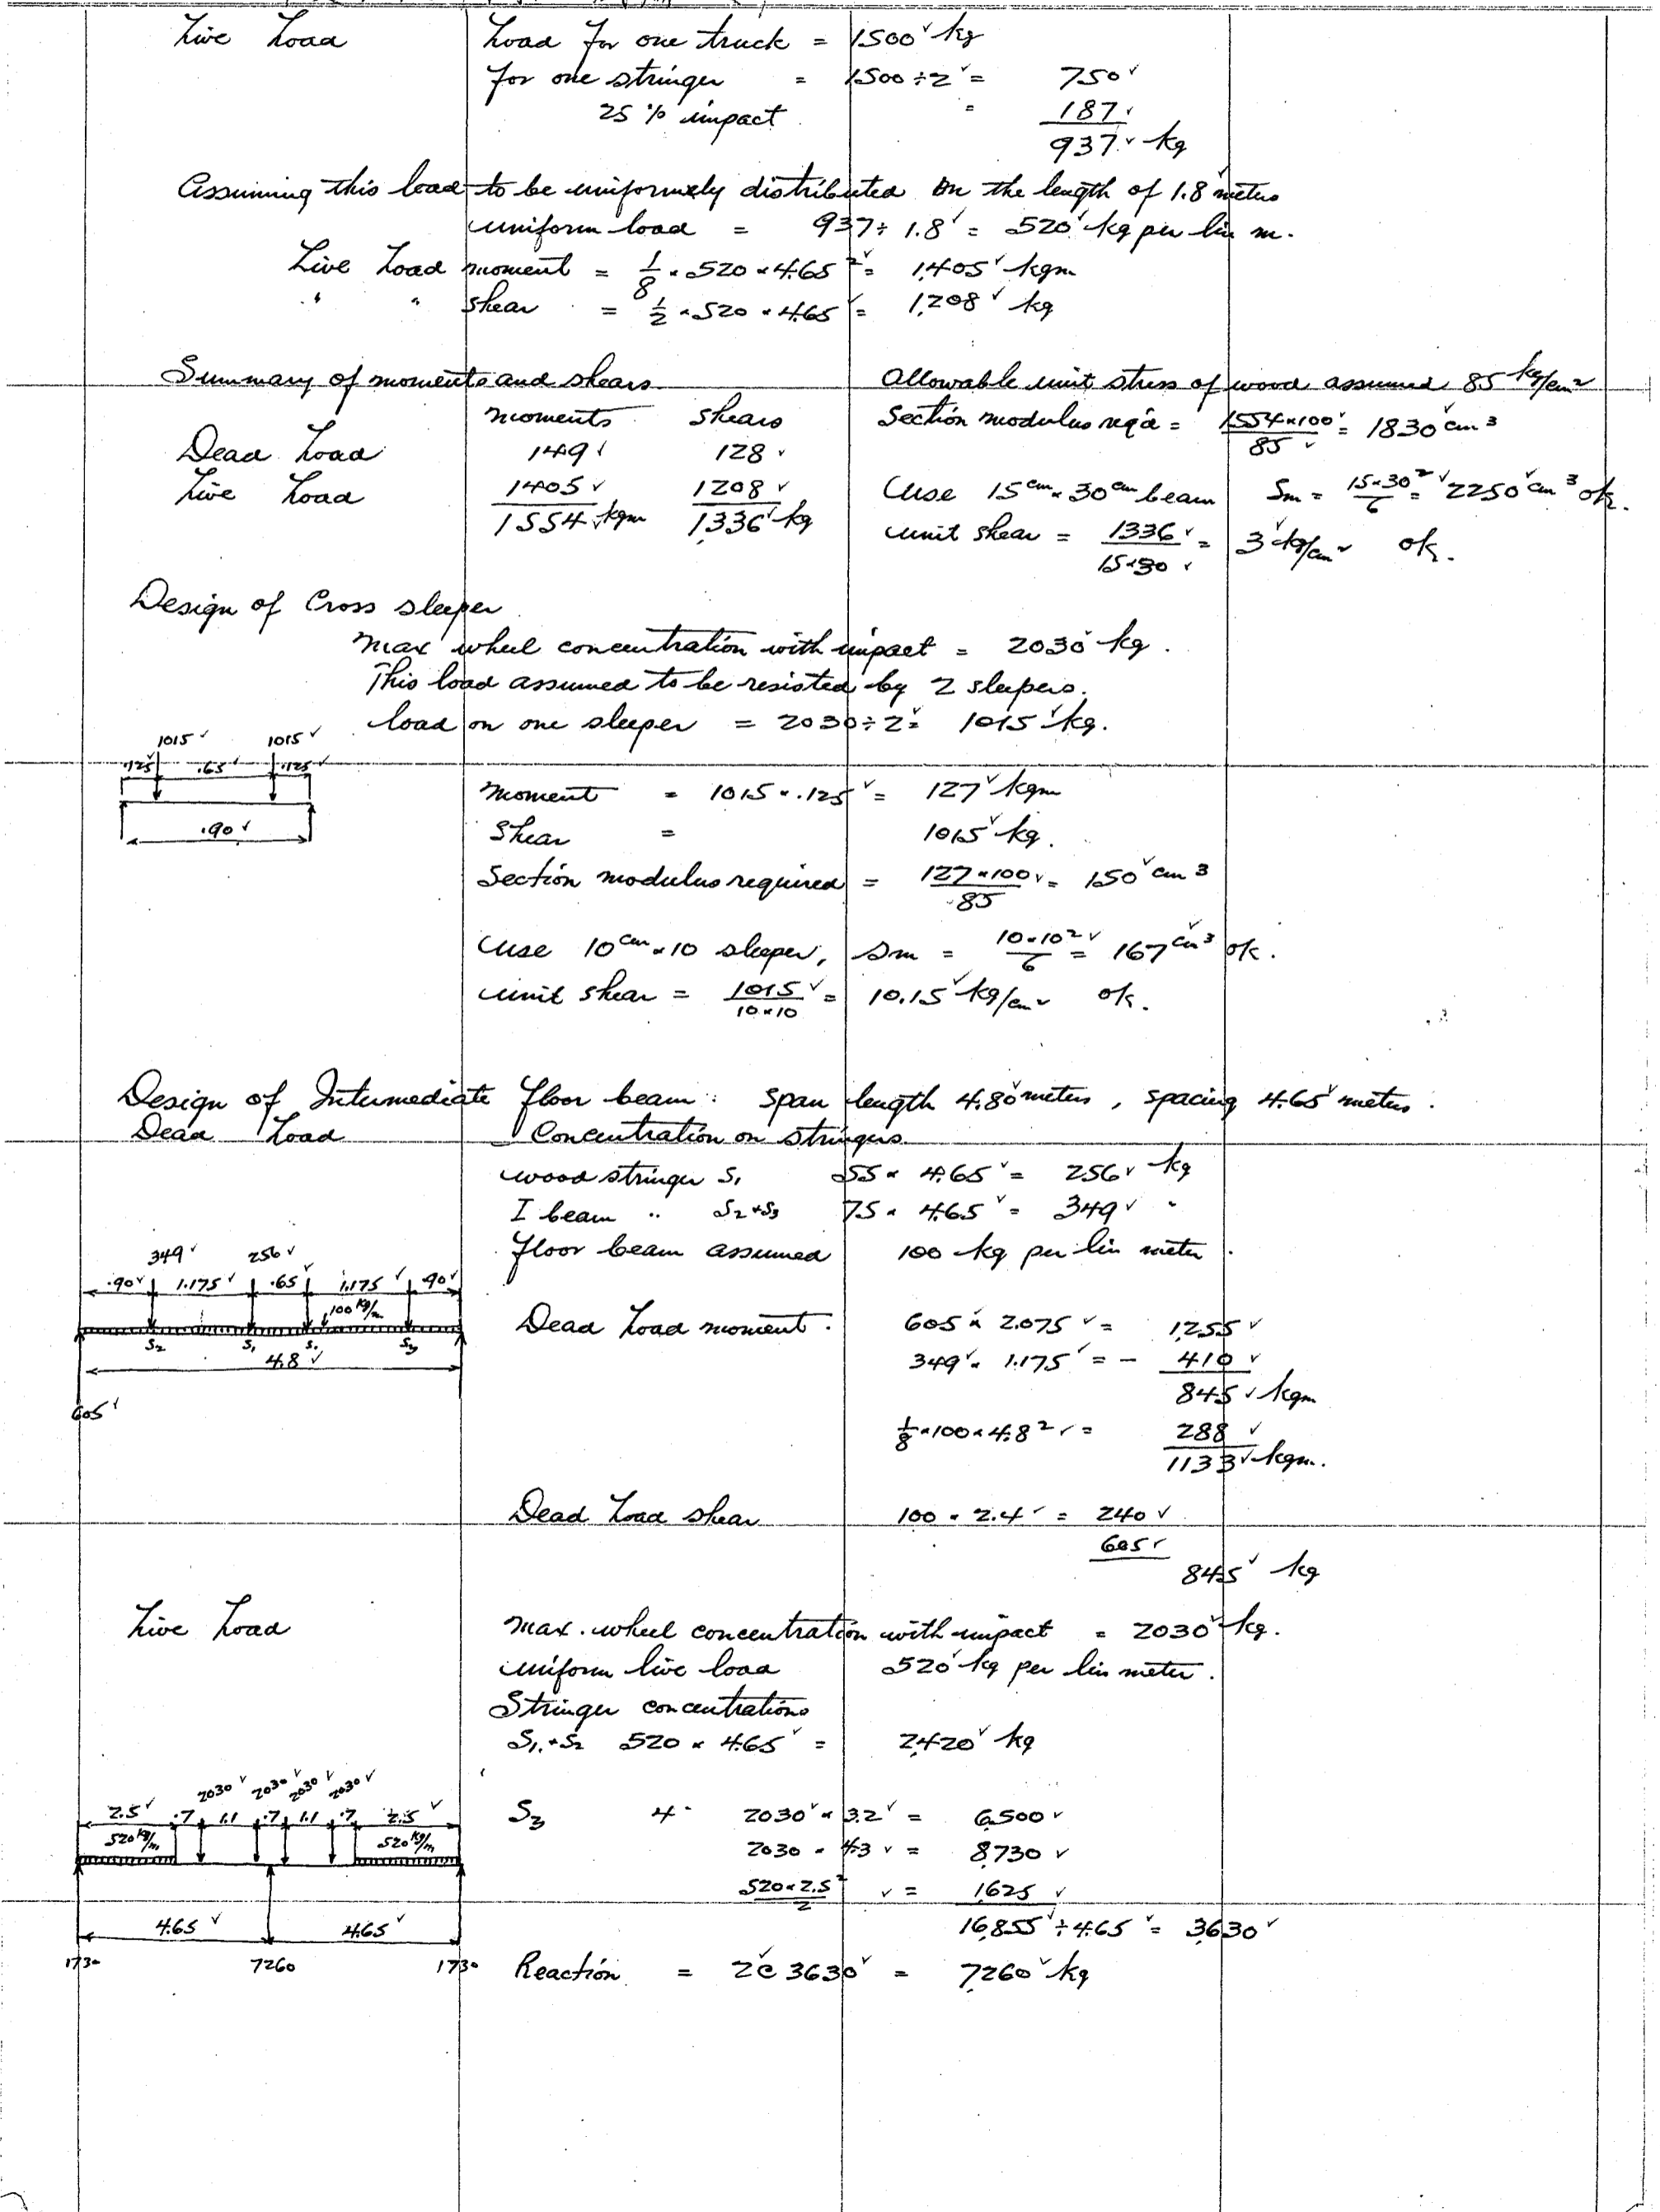 Live Load Load for one truck = 1500 kg
for one stringer = 1500 ÷ 2 = 750
25 % impact = 187
937 kg
Assuming this load to be uniformely distributed on the length of 1.8 meters
uniform load = 937 ÷ 1.8 = 520 kg per lin m.
Live Load moment = 1/8 × 520 × 4.65² = 1,405 kgm
" " shear = 1/2 × 520 × 4.65 = 1,208 kg
Summary of moments and shears
moments shears
Dead Load 149 128
Live Load 1405 1208
1554 kgm 1,336 kg
Allowable unit stress of wood assumed 85 kg/cm²
Section modulus req'd = 1554×100/85 = 1830 cm³
Use 15 cm × 30 cm beam Sm = 15×30²/6 = 2250 cm³ ok.
unit shear = 1336/15×30 = 3 kg/cm² ok.
Design of Cross sleeper
max wheel concentration with impact = 2030 kg.
This load assumed to be resisted by 2 sleepers.
load on one sleeper = 2030 ÷ 2 = 1015 kg.
1015 1015
.125 .65 .125
.90
moment = 1015 × .125 = 127 kgm
Shear = 1015 kg.
Section modulus required = 127×100/85 = 150 cm³
Use 10 cm × 10 sleeper, Sm = 10×10²/6 = 167 cm³ ok.
unit shear = 1015/10×10 = 10.15 kg/cm² ok.
Design of Intermediate floor beam: span length 4.80 meters, spacing 4.65 meters.
Dead Load Concentration on stringers
wood stringer S1 55 × 4.65 = 256 kg
I beam " S2+S3 75 × 4.65 = 349 "
floor beam assumed 100 kg per lin meter.
349 256
.90 1.175 .65 1.175 .90
100 kg/m
S2 S1 S1 S3
4.8
605
Dead Load moment. 605 × 2.075 = 1,255
349 × 1.175 = - 410
845 kgm
1/8 × 100 × 4.8² = 288
1133 kgm.
Dead Load shear 100 × 2.4 = 240
605
845 kg
Live Load max. wheel concentration with impact = 2030 kg.
uniform live load 520 kg per lin meter.
Stringer concentrations
S1+S2 520 × 4.65 = 2,420 kg
2030 2030 2030 2030
2.5 .7 1.1 .7 1.1 .7 2.5
520 kg/m 520 kg/m
4.65 4.65
1730 7260 1730
S3 2030 × 3.2 = 6,500
2030 × 4.3 = 8,730
520×2.5²/2 = 1,625
16,855 ÷ 4.65 = 3,630
Reaction = 2@ 3630 = 7,260 kg